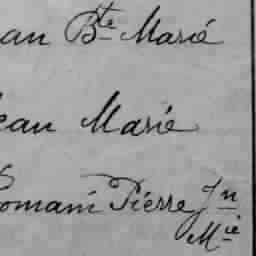 ean Bte Marié
Jean Marie
Romani Pierre Jn
Mie